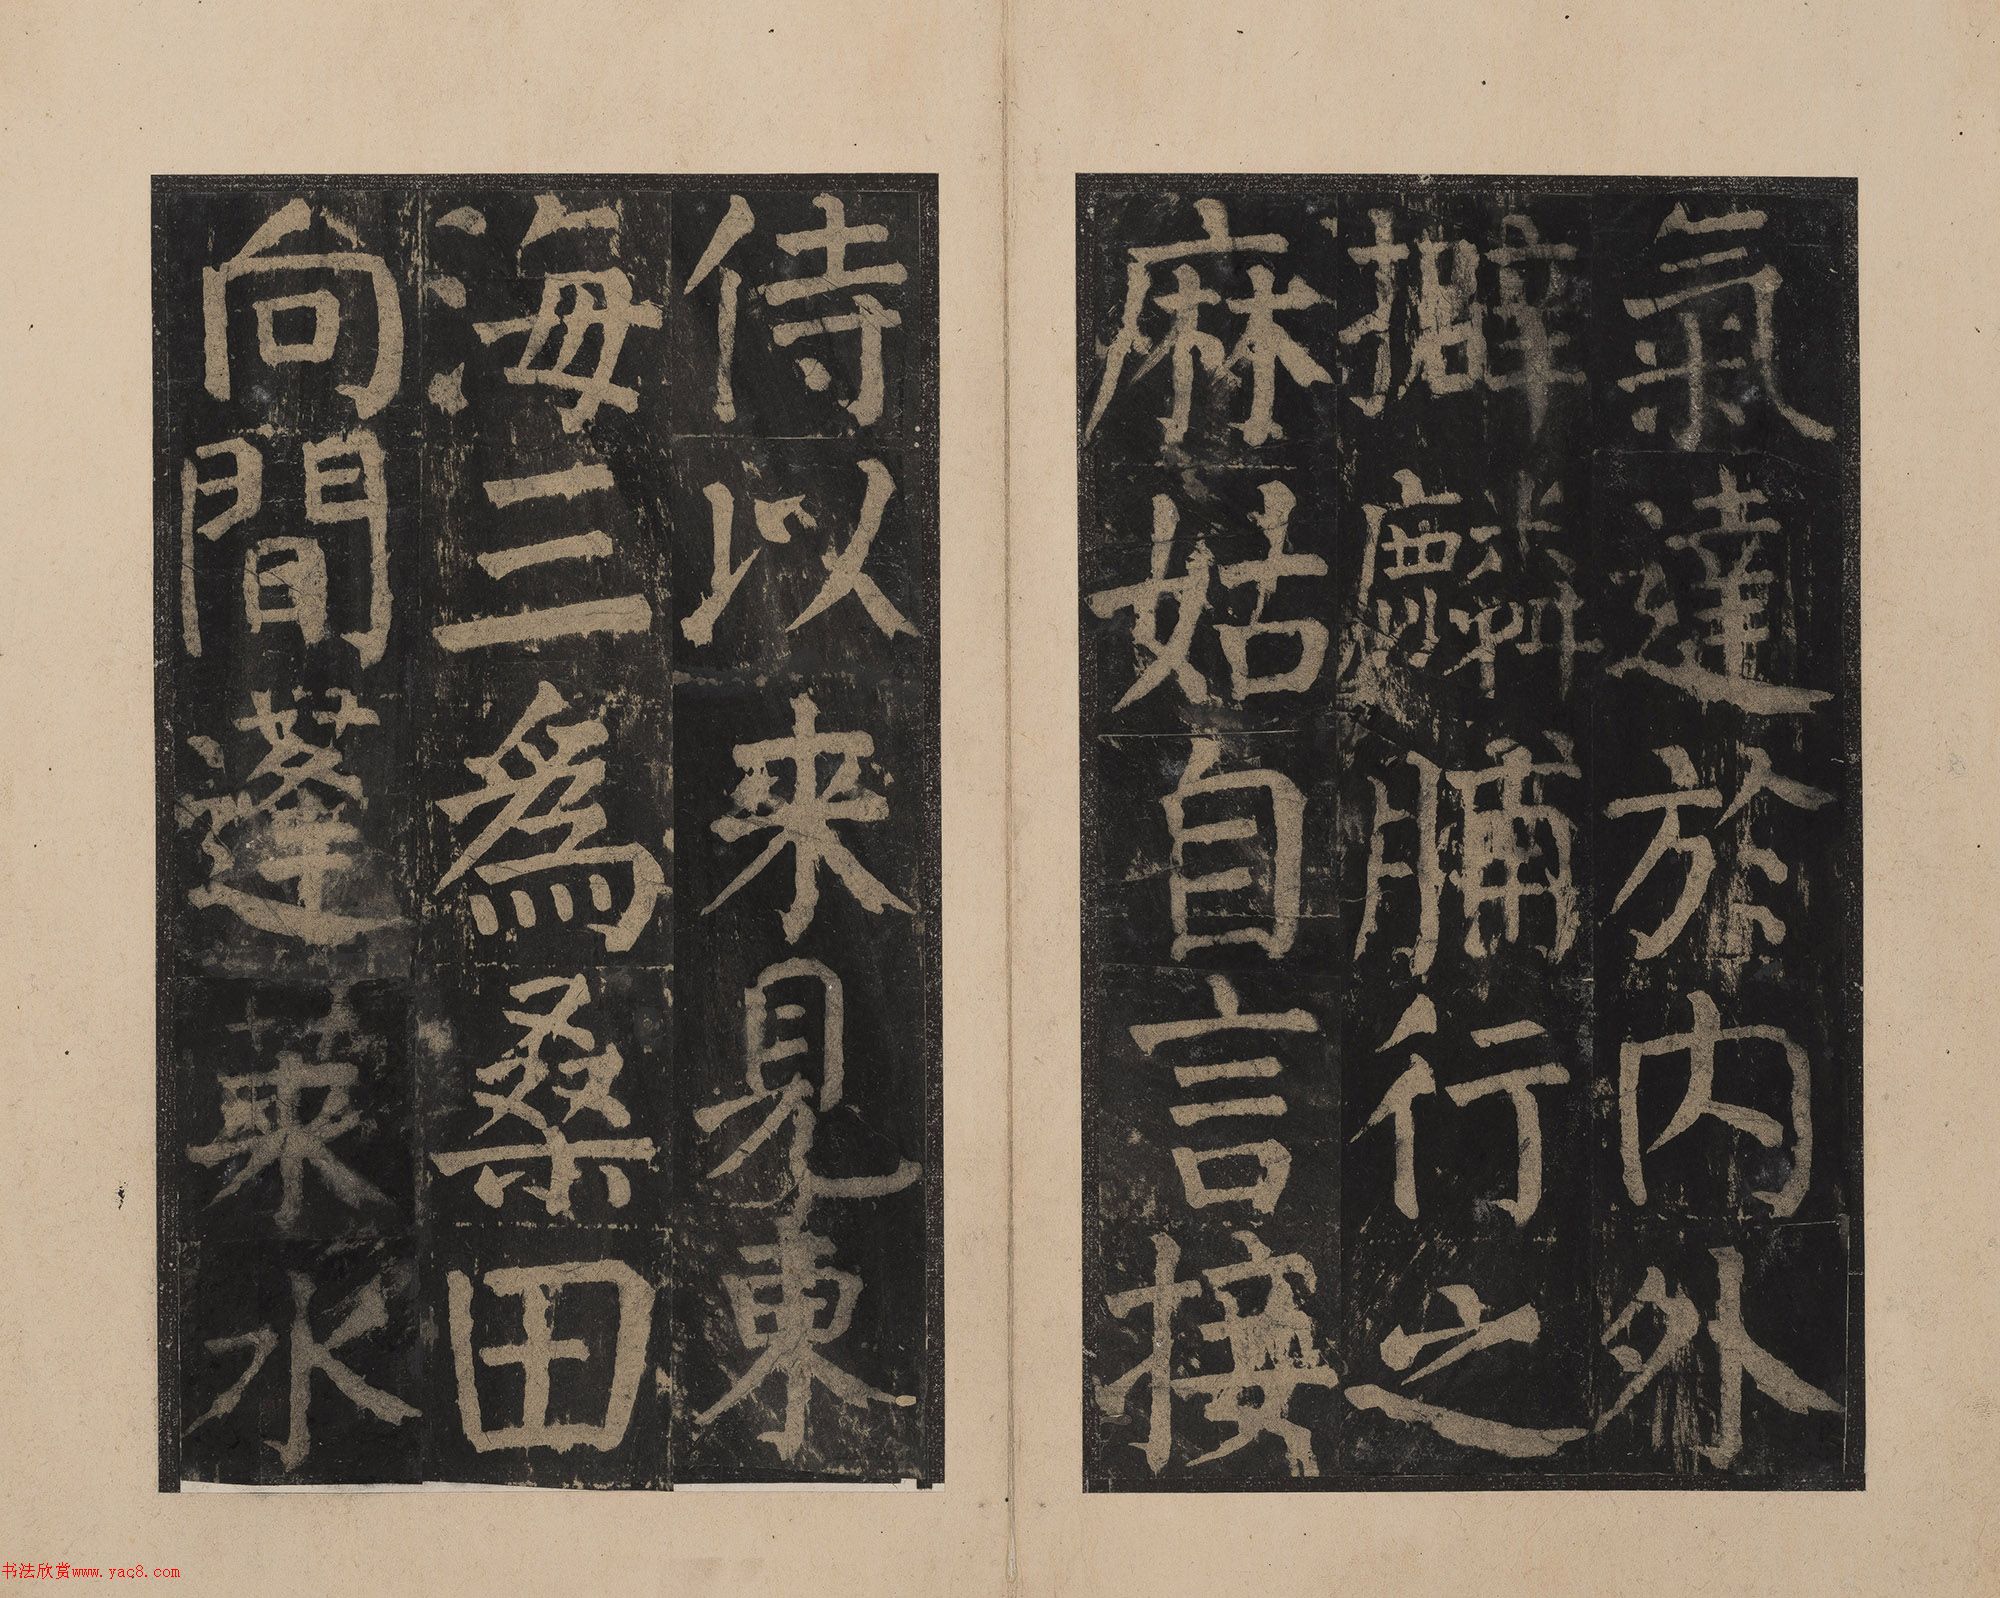 氣達於內外
擗麟脯行之
麻姑自言接
侍以来見東
海三為桑田
向間蓬莱水
书法欣赏www.yac8.com